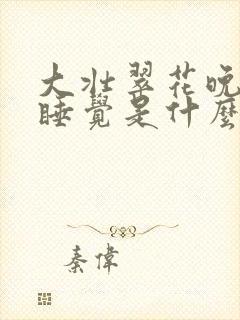 大壯翠花晚
睡覺是什麼
秦偉